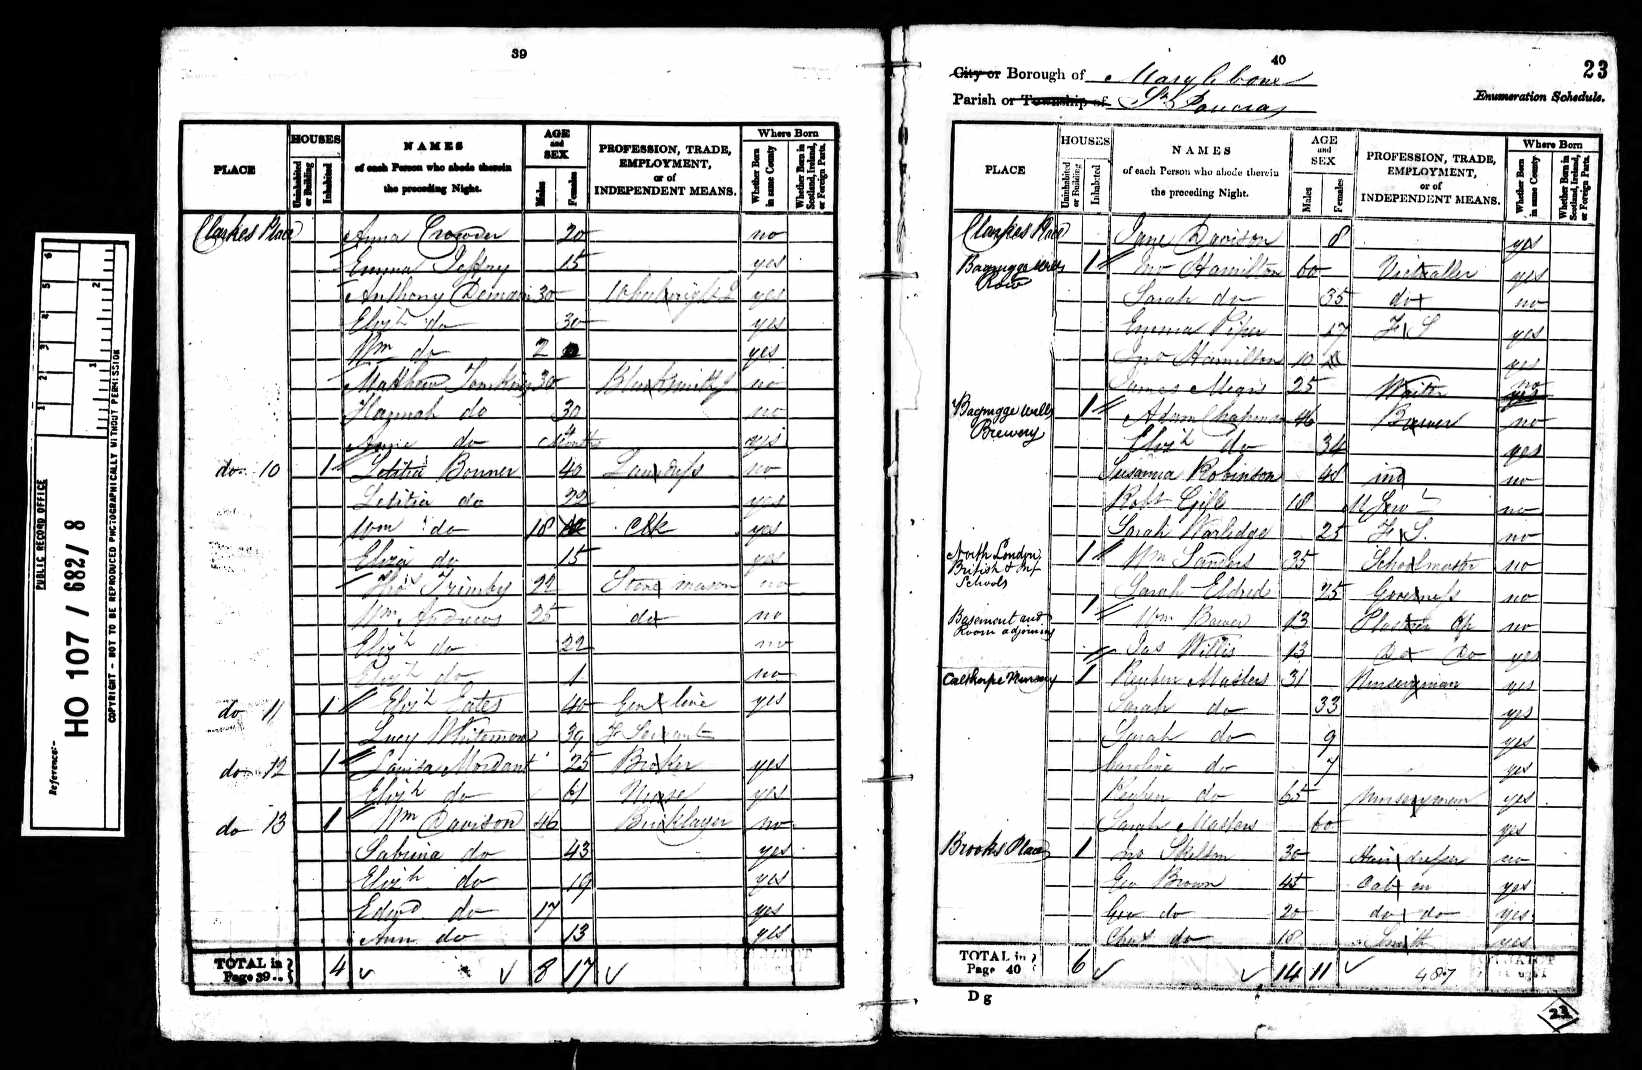 PUBLIC RECORD OFFICE
Reference:-
HO 107 / 682 / 8
COPYRIGHT - NOT TO BE REPRODUCED PHOTOGRAPHICALLY WITHOUT PERMISSION
39
PLACE
HOUSES
Uninhabited or Building
Inhabited
NAMES
of each Person who abode therein
the preceding Night.
AGE
and
SEX
Males
Females
PROFESSION, TRADE,
EMPLOYMENT,
or of
INDEPENDENT MEANS.
Where Born
Whether Born in same County
Whether Born in Scotland, Ireland, or Foreign Parts.
Clarkes Place Anna Crowder 20 no
Emma Jeffry 15 yes
Anthony 30 Wheelwright J yes
Elizh do 30 yes
Wm do 2 yes
Matthew Tomkins 30 Blacksmith J no
Hannah do 30 no
do Months yes
do 10 1 Letitia Bonner 40 Laundress no
Letitia do 22 yes
Wm do 18 Clk yes
Eliza do 15 yes
Thos Trimby 22 Stone mason no
Wm Andrews 25 do no
Elizh do 22 no
Elizh do 1 no
do 11 1 Elizh Gates 40 yes
Lucy Whiteman 39 F Servant
do 12 1 Louisa Mordant 25 Broker yes
Elizh do 61 Nurse yes
do 13 1 Wm Davison 46 Bricklayer no
Sabrina do 43 yes
Elizh do 19 yes
Edwd do 17 yes
Ann do 13 yes
TOTAL in Page 39.. 4 8 17
40
23
City or Borough of Marylebone
Parish or Township of St Pancras
Enumeration Schedule.
PLACE
HOUSES
Uninhabited or Building
Inhabited
NAMES
of each Person who abode therein
the preceding Night.
AGE
and
SEX
Males
Females
PROFESSION, TRADE,
EMPLOYMENT,
or of
INDEPENDENT MEANS.
Where Born
Whether Born in same County
Whether Born in Scotland, Ireland, or Foreign Parts.
Clarkes Place Jane Davison 8 yes
Bagnigge Wells Row 1 Jno Hamilton 60 Victualler yes
Sarah do 35 do no
Emma Piper 17 F S yes
Jno Hamilton 10 yes
James 25 Waiter no
Bagnigge Wells Brewery 1 Adam 46 Brewer no
Elizh do 34 yes
Susanna Robinson 48 ind no
Robt Gill 18 M Serv no
Sarah Warlidge 25 F S. no
North London British & Inf Schools 1 Wm Sanders 35 Schoolmaster no
Sarah Eldred 25 Governess no
Basement and Room adjoining 1 Wm Bower 13 Plasterer Ap no
Jas Willis 13 Do Do yes
Calthorpe Nursery 1 Reuben Masters 31 Nurseryman yes
Sarah do 33 yes
Sarah do 9 yes
Caroline do 7 yes
Reuben do 65 Nurseryman yes
Sarah Masters 60 yes
Brooks Place 1 Jno Skelton 30 Hair dresser no
Geo Brown 45 yes
Geo do 20 do do yes
Chas do 18 Smith yes
TOTAL in Page 40 6 14 11
487
D g
23